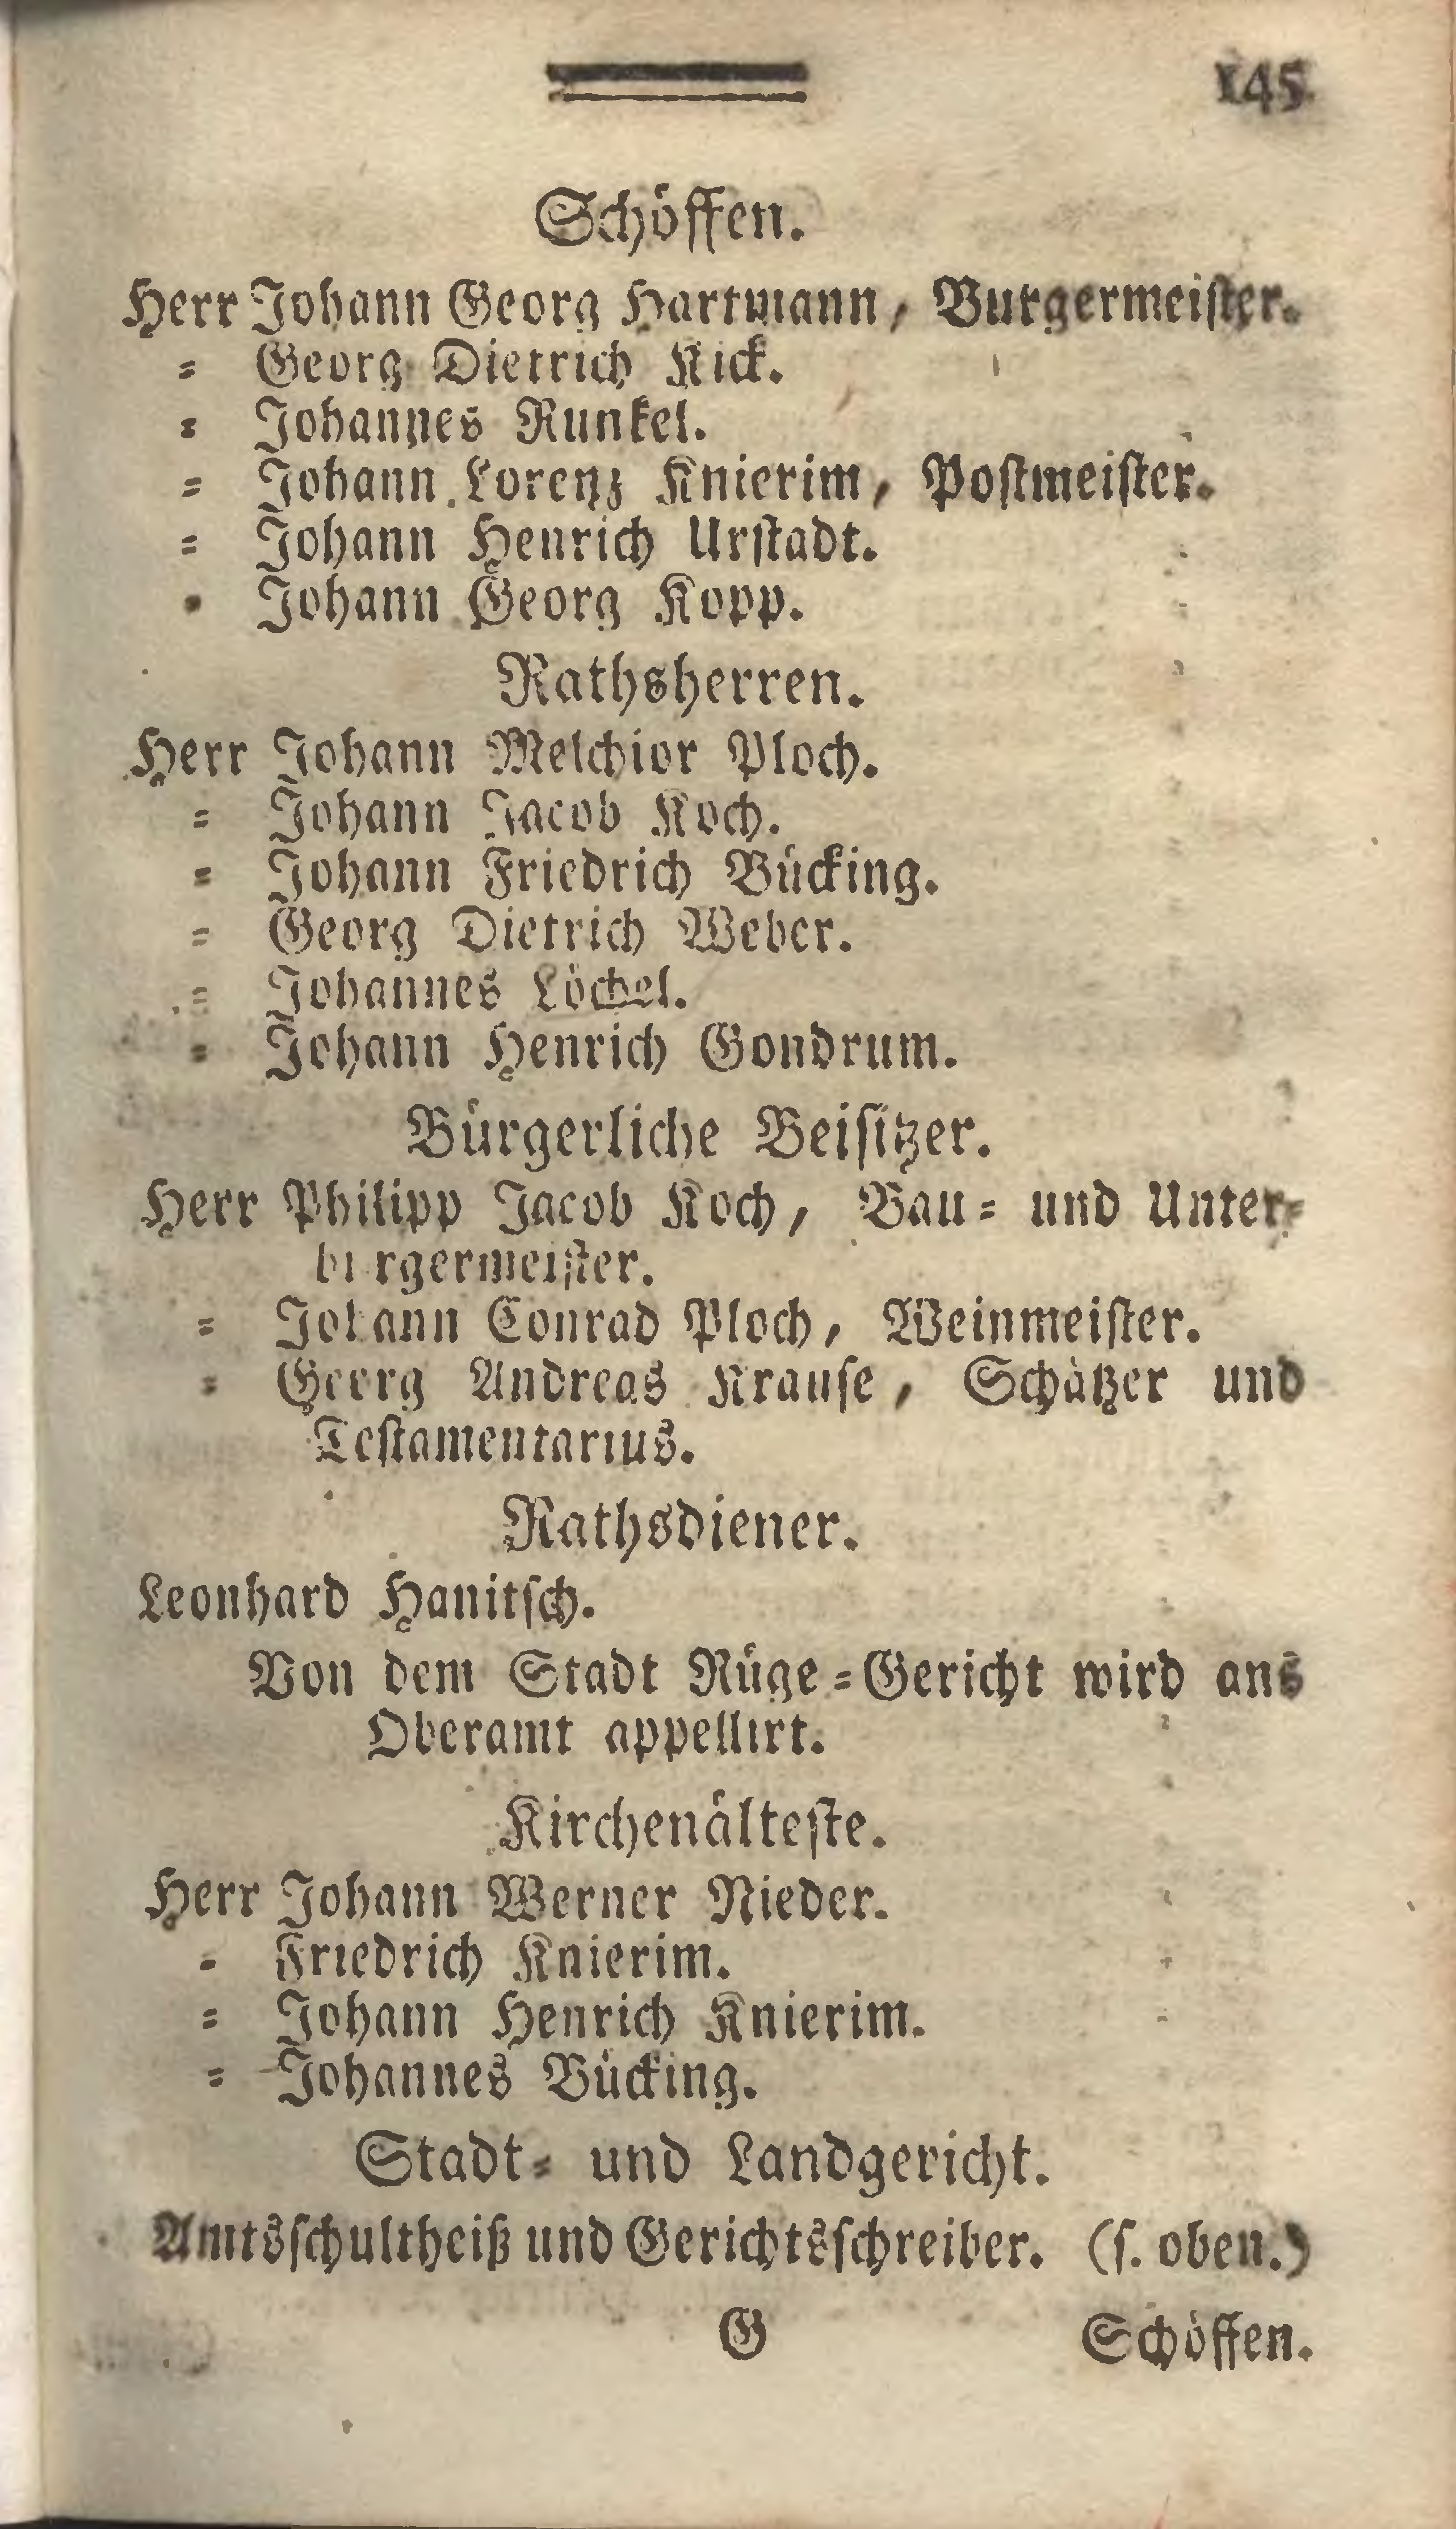 145
Schöffen.
Herr Johann Georg Hartmann, Burgermeister.
= Georg Dietrich Kick.
= Johannes Runkel.
= Johann Lorenz Knierim, Postmeister.
= Johann Henrich Urstadt.
= Johann Georg Kopp.
Rathsherren.
Herr Johann Melchior Ploch.
= Johann Jacob Koch.
= Johann Friedrich Bücking.
= Georg Dietrich Weber.
= Johannes Löchel.
= Johann Henrich Gondrum.
Bürgerliche Beisitzer.
Herr Philipp Jacob Koch, Bau= und Unter=
burgermeister.
= Johann Conrad Ploch, Weinmeister.
= Georg Andreas Krause, Schätzer und
Testamentarius.
Rathsdiener.
Leonhard Hanitsch.
Von dem Stadt Rüge=Gericht wird ans
Oberamt appellirt.
Kirchenälteste.
Herr Johann Werner Nieder.
= Friedrich Knierim.
= Johann Henrich Knierim.
= Johannes Bücking.
Stadt= und Landgericht.
Amtsschultheiß und Gerichtsschreiber. (s. oben.)
G Schöffen.